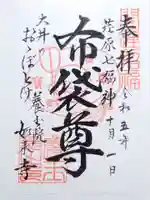 奉拝
令和五年
荏原七福神
十月一日
布袋尊
大井の
おおぼとけ
養玉院
如来寺